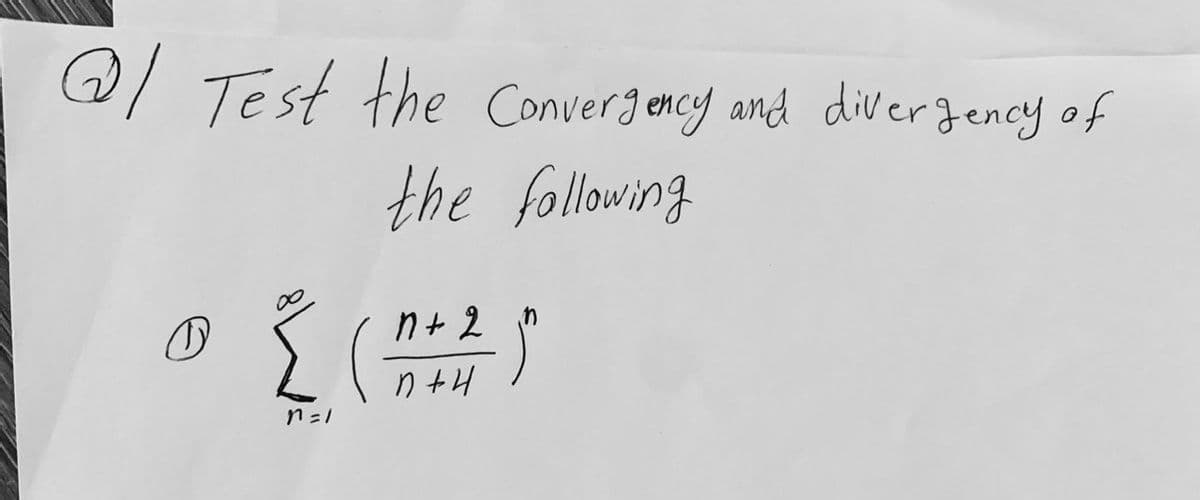 Q/ Test the Convergency and divergency of
the following
① ∞ Σ n=1 ( n+2 / n+4 )^n